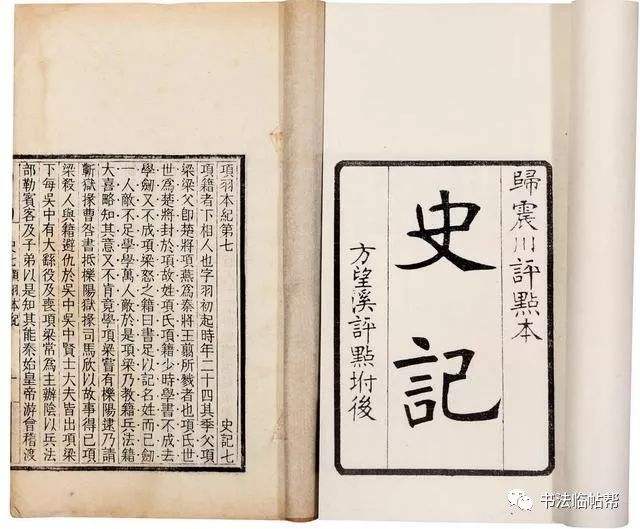 歸震川評點本
史記
方望溪評點坿後
項羽本紀第七 史記七
項籍者下相人也字羽初起時年二十四其季父項
梁梁父卽楚將項燕爲秦將王翦所戮者也項氏世
世爲楚將封於項故姓項氏項籍少時學書不成去
學劒又不成項梁怒之籍曰書足以記名姓而已劒
一人敵不足學學萬人敵於是項梁乃教籍兵法籍
大喜略知其意又不肯竟學項梁嘗有櫟陽逮乃請
蘄獄掾曹咎書抵櫟陽獄掾司馬欣以故事得已項
梁殺人與籍避仇於吳中吳中賢士大夫皆出項梁
下每吳中有大繇役及喪項梁常爲主辦陰以兵法
部勒賓客及子弟以是知其能秦始皇帝游會稽渡
项羽本紀
书法临帖帮